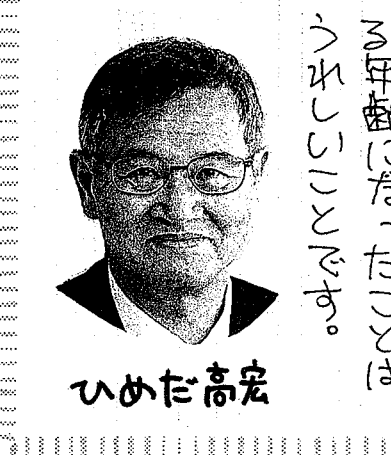 る年齢になったことは
うれしいことです。
ひめだ高宏